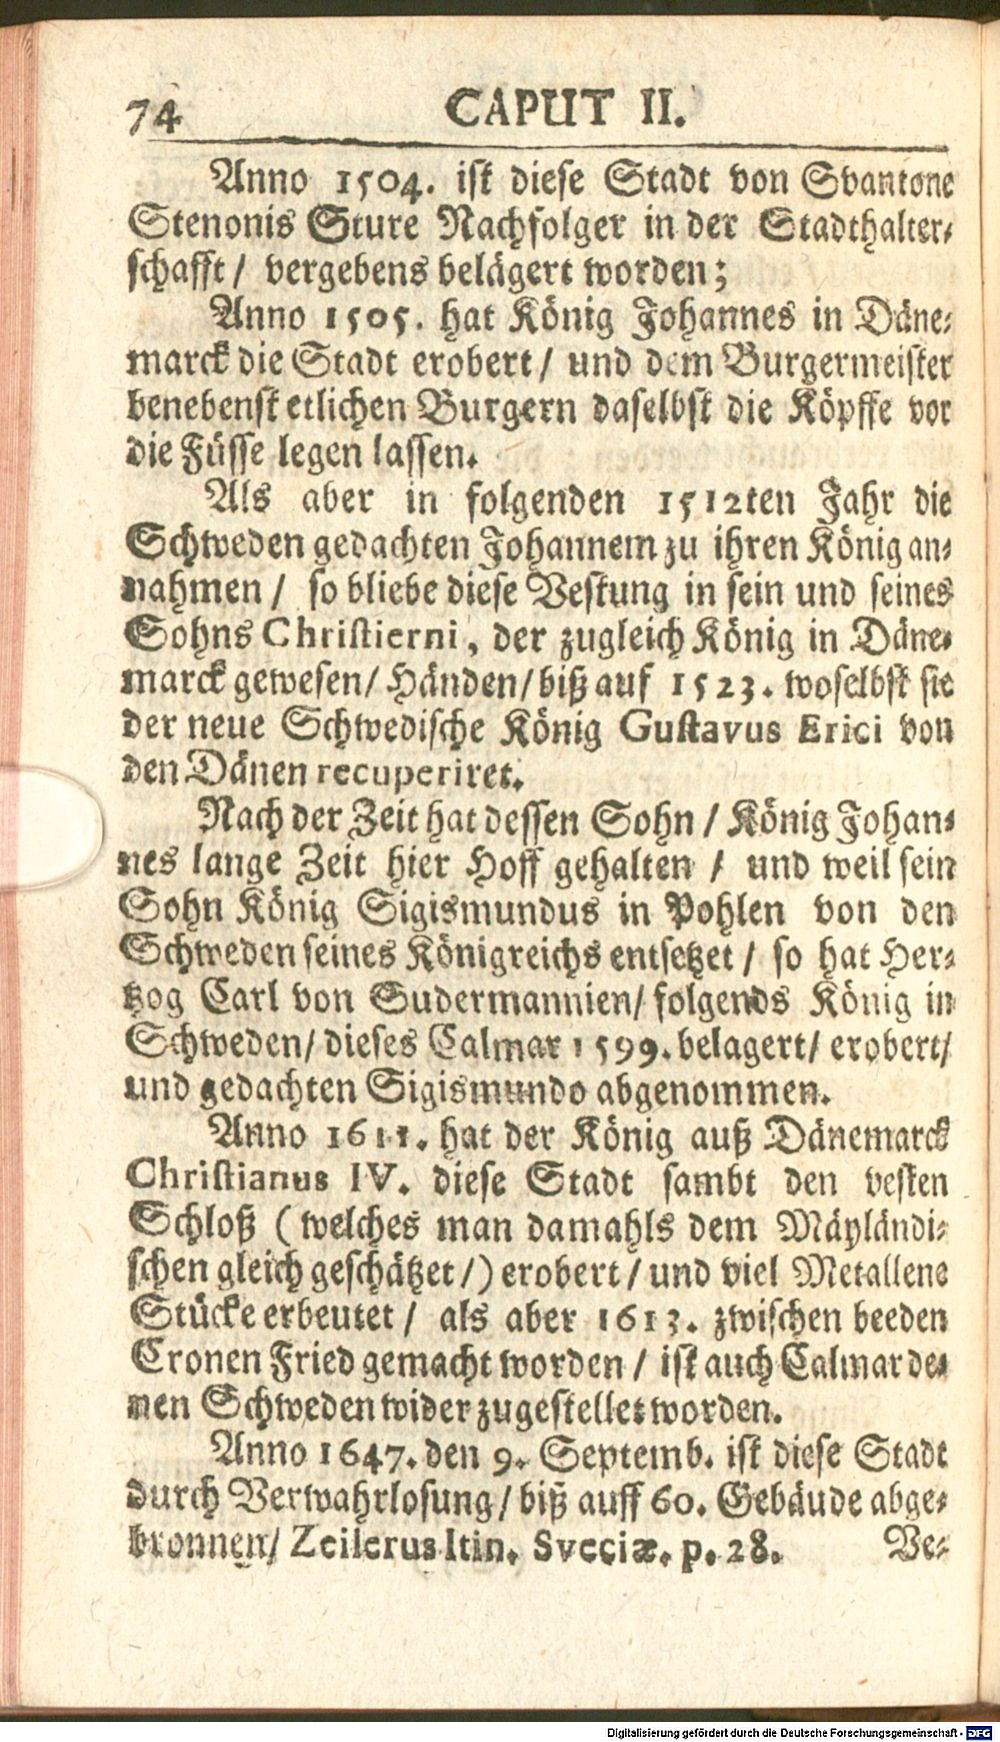 74 CAPUT II.
Anno 1504. ist diese Stadt von Svantone
Stenonis Sture Nachfolger in der Stadthalter-
schafft / vergebens belägert worden;
Anno 1505. hat König Johannes in Däne-
marck die Stadt erobert / und dem Burgermeister
benebenst etlichen Burgern daselbst die Köpffe vor
die Füsse legen lassen.
Als aber in folgenden 1512ten Jahr die
Schweden gedachten Johannem zu ihren König an-
nahmen / so bliebe diese Vestung in sein und seines
Sohns Christierni, der zugleich König in Däne-
marck gewesen / Händen / biß auf 1523. woselbst sie
der neue Schwedische König Gustavus Erici von
den Dänen recuperiret.
Nach der Zeit hat dessen Sohn / König Johan-
nes lange Zeit hier Hoff gehalten / und weil sein
Sohn König Sigismundus in Pohlen von den
Schweden seines Königreichs entsetzet / so hat Her-
tzog Carl von Sudermannien / folgends König in
Schweden / dieses Calmar 1599. belagert / erobert /
und gedachten Sigismundo abgenommen.
Anno 1611. hat der König auß Dänemarck
Christianus IV. diese Stadt sambt den vesten
Schloß ( welches man damahls dem Mäyländi-
schen gleich geschätzet /) erobert / und viel Metallene
Stücke erbeutet / als aber 1613. zwischen beeden
Cronen Fried gemacht worden / ist auch Calmar de-
nen Schweden wider zugestellet worden.
Anno 1647. den 9. Septemb. ist diese Stadt
durch Verwahrlosung / biß auff 60. Gebäude abge-
bronnen / Zeilerus Itin. Sveciæ. p. 28. Ve-
Digitalisierung gefördert durch die Deutsche Forschungsgemeinschaft - DFG